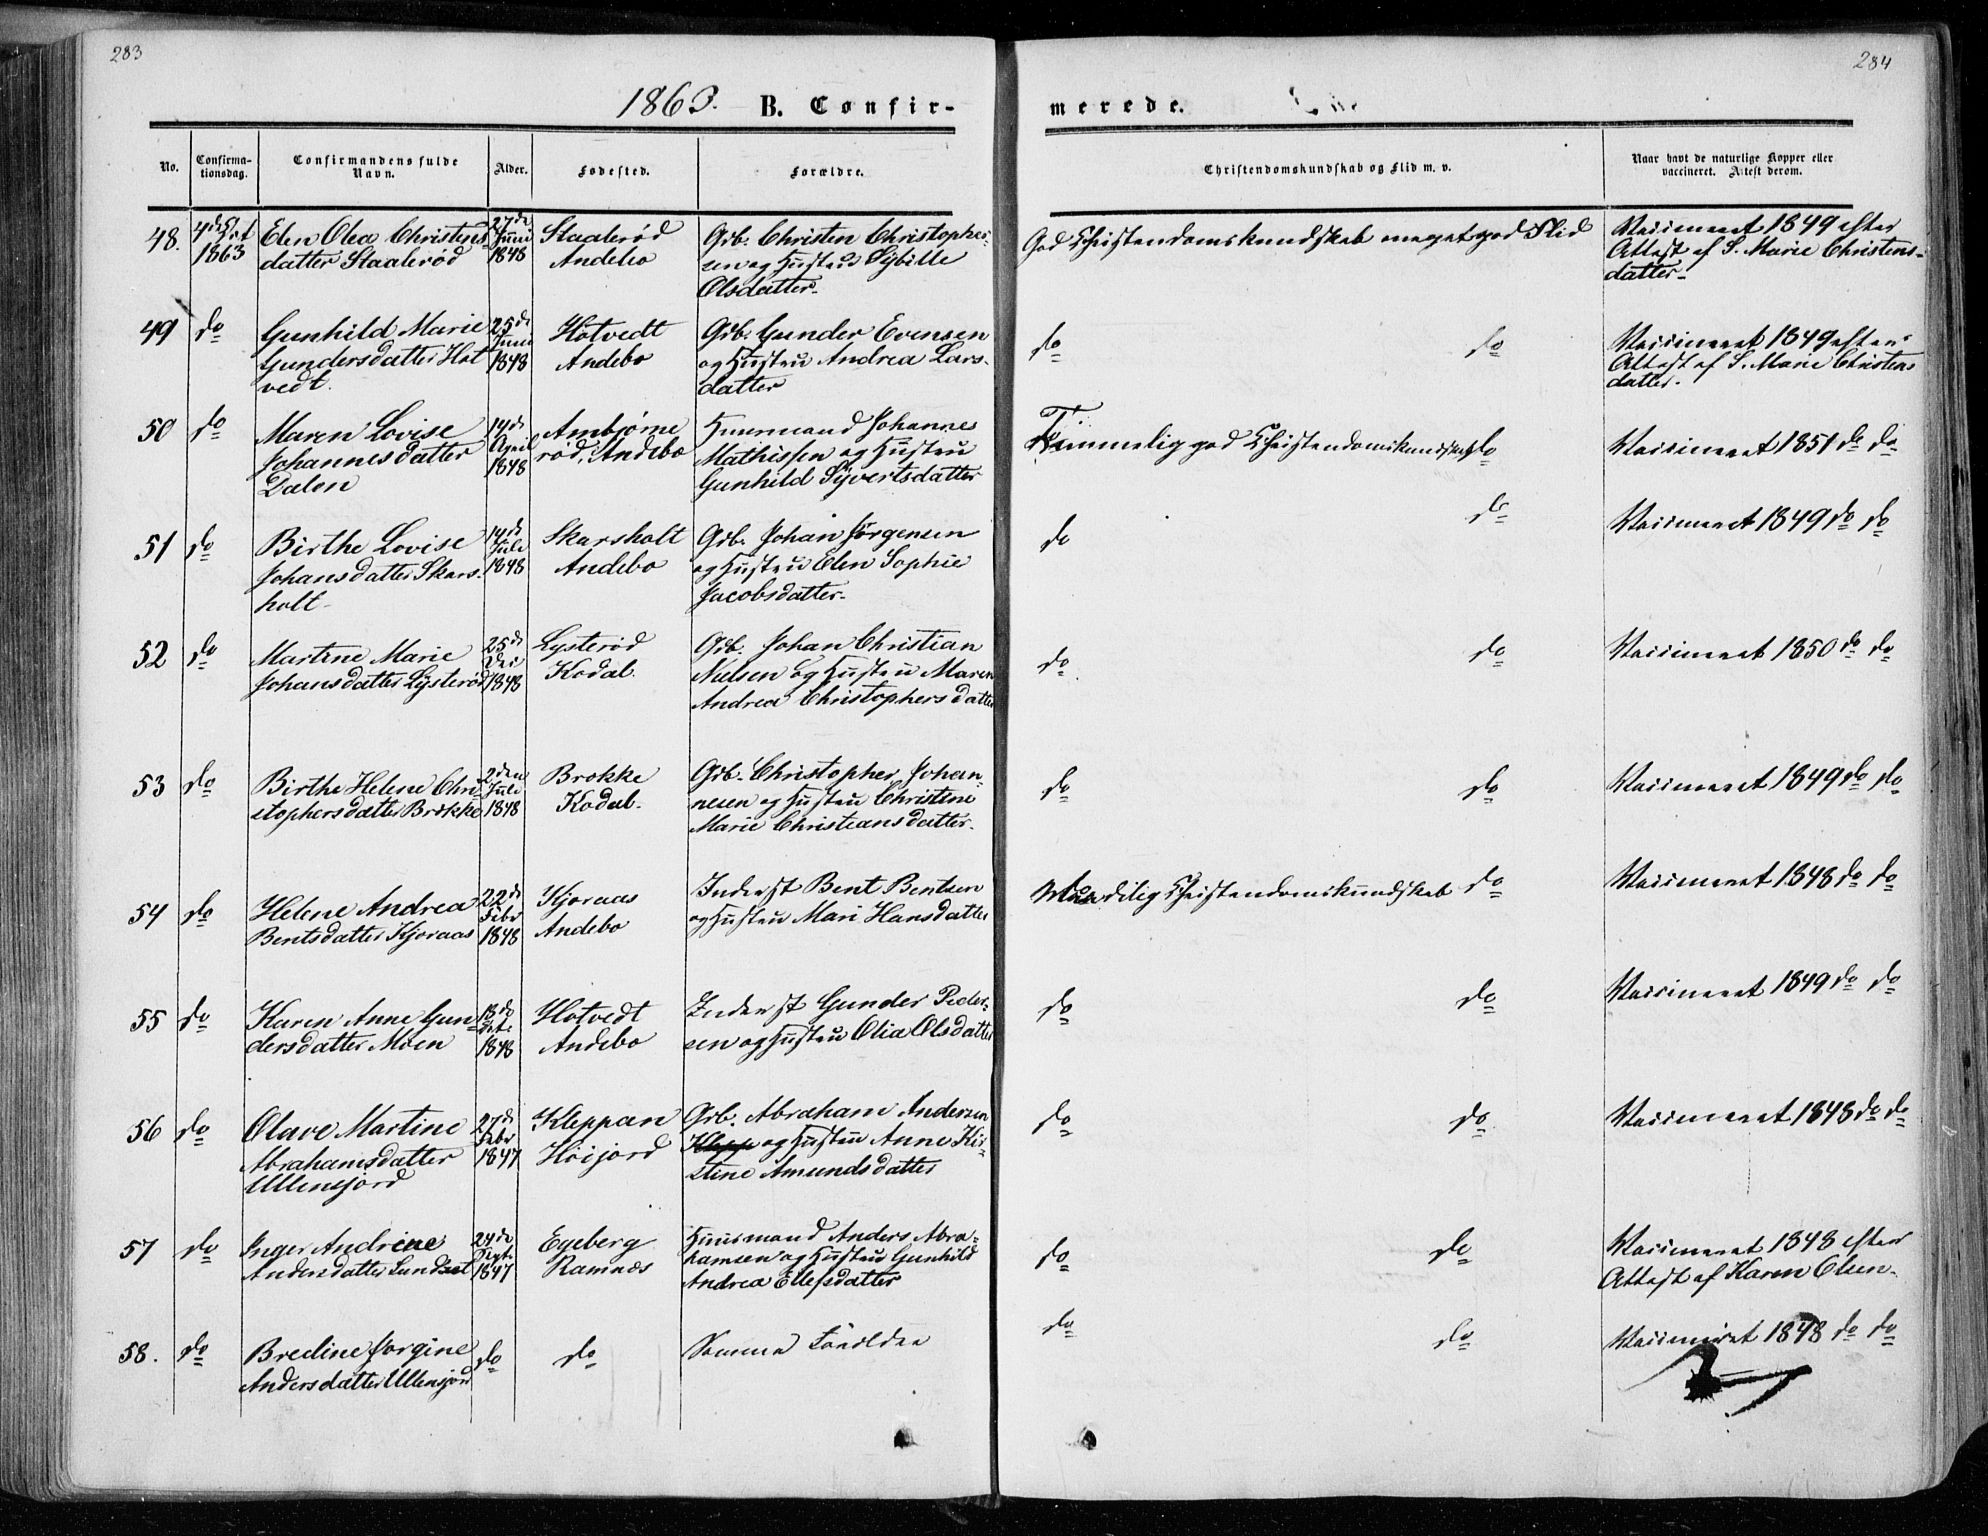 283
284
1863. B. Confir-
merede.
No.
Confirma-
tionsdag.
Confirmandens fulde
Navn.
Alder.
Fødested.
Forældre.
Christendomskundskab og Flid m. v.
Naar havt de naturlige Kopper eller
vaccineret. Attest derom.
48. 4de Oct
1863
Elen Olea Christens-
datter Staalerød
27de
Juni
1848
Staalerød
Andebo
Grb. Christen Christopher-
sen og Hustru Sybille
Olsdatter
God Christendomskundskab meget god Flid
Vaccineret 1849 efter
Attest af S. Marie Christens-
datter
49 do
Gunhild Marie
Gundersdatter Hot
vedt.
25de
Juni
1848
Hotvedt
Andebo
Grb. Gunder Evensen
og Hustru Andrea Lars-
datter
do do
Vaccineret 1849 efter
Attest af S. Marie Christens
datter.
50 do
Maren Lovise
Johannesdatter
Dalen
14de
April
1848
Ambjørne
rød, Andebo
Huusmand Johannes
Mathissen og Hustru
Gunhild Syvertsdatter
Temmelig god Christendomskundskab do
Vaccineret 1851 do do
51 do
Birthe Lovise
Johansdatter Skars-
holt-
14de
Juli
1848
Skarsholt
Andebo
Grb. Johan Jørgensen
og Hustru Elen Sophie
Jacobsdatter-
do do
Vaccineret 1849 do do
52 do
Martine Marie
Johansdatter Lysterød
25de
1848
Lysterød
Kodal.
Grb. Johan Christian
Nielsen og Hustru Maren
Andrea Christophersdatter
do do
Vaccineret 1850 do do
53 do
Birthe Helene Chri
stophersdatter Brokke
2den
Juli
1848
Brokke
Kodal-
Grb. Christopher Johan-
nesen og Hustru Christine
Marie Christiansdatter-
do do
Vaccineret 1849 do do
54 do
Helene Andrea
Bentsdatter Kjoraas
22de
Febr
1848
Kjoraas
Andebo
Inderst Bent Bentsen
og Hustru Mari Hansdatter
Maadelig Christendomskundskab do
Vaccineret 1848 do do
55 do
Karen Anne Gun-
dersdatter Moen
1848
Hotvedt
Andebo
Inderst Gunder Peder-
sen og Hustru Olia Olsdatter
do do
Vaccineret 1849 do do
56 do
Olave Martine
Abrahamsdatter
Ullensjord
27de
Febr
1847
Kleppan
Höijord
Grb. Abraham Andersen
Klepp og Hustru Anne Kir-
stine Amundsdatter
do do
Vaccineret 1848 do do
57 do
Inger Andrine
Andersdatter
24de
Sept.
1847
Egeberg
Ramnæs
Huusmand Anders Abra-
hamsen og Hustru Gunhild
Andrea Ellefsdatter
do do
Vaccineret 1848 efter
Attest af Karen Olsen-
58. do
Bredine Jorgine
Andersdatter Ullensjord
do
do
Samme Forældre
do do
Vaccineret 1848 do do